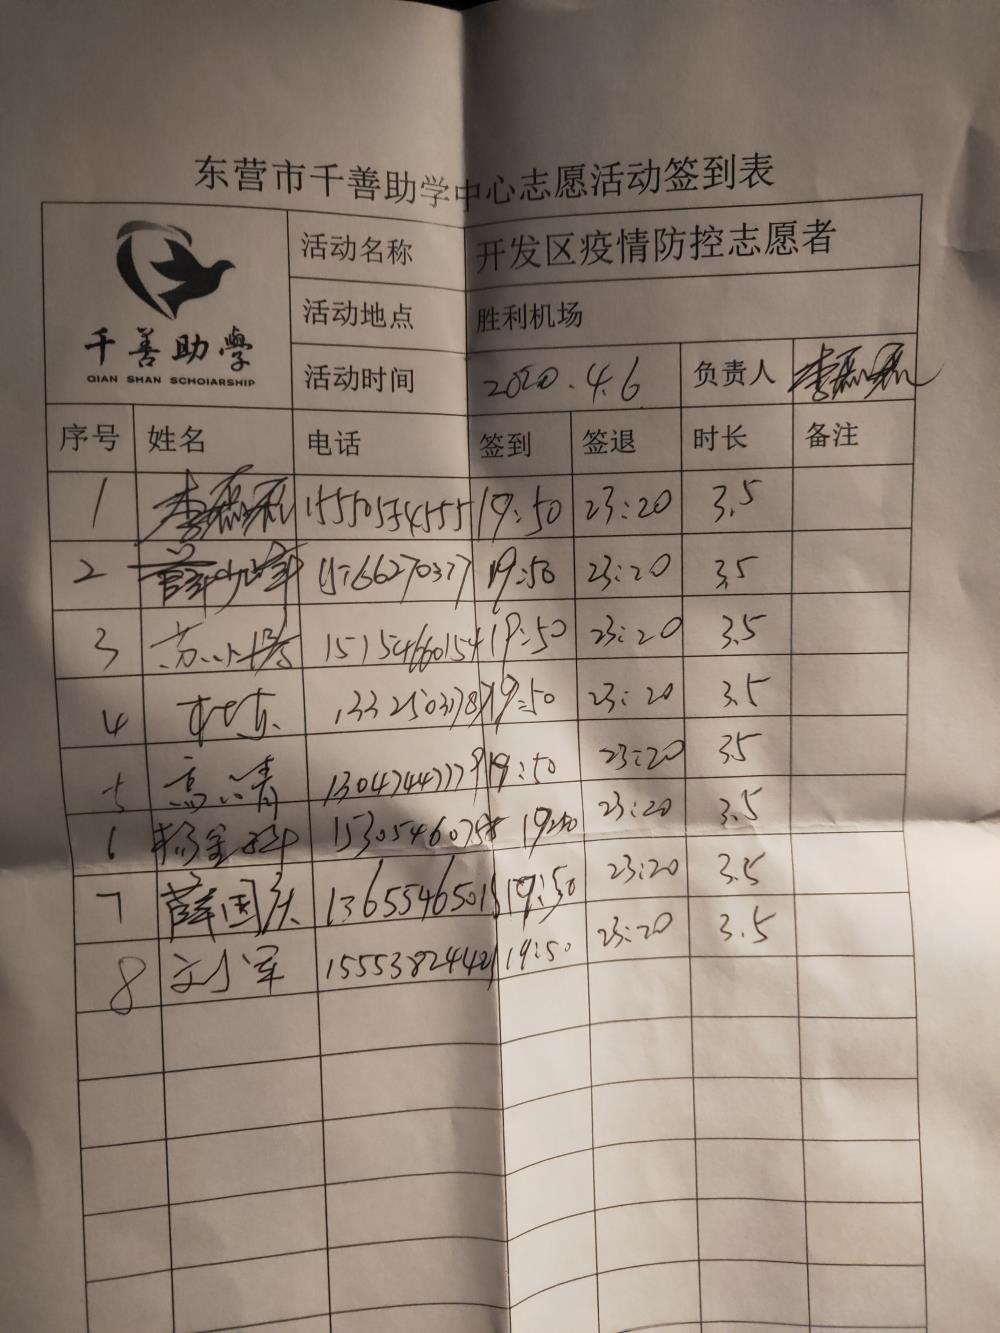 东营市千善助学中心志愿活动签到表
千善助學
QIAN SHAN SCHOIARSHIP
活动名称 开发区疫情防控志愿者
活动地点 胜利机场
活动时间 2020.4.6 负责人
序号 姓名 电话 签到 签退 时长 备注
1 19:50 23:20 3.5
2 15766270377 19:50 23:20 3.5
3 苏小 15154660154 19:50 23:20 3.5
4 杜东 19:50 23:20 3.5
5 高小青 19:50 23:20 35
6 杨 19:50 23:20 3.5
7 薛国庆 19:50 23:20 3.5
8 文少军 19:50 23:20 3.5